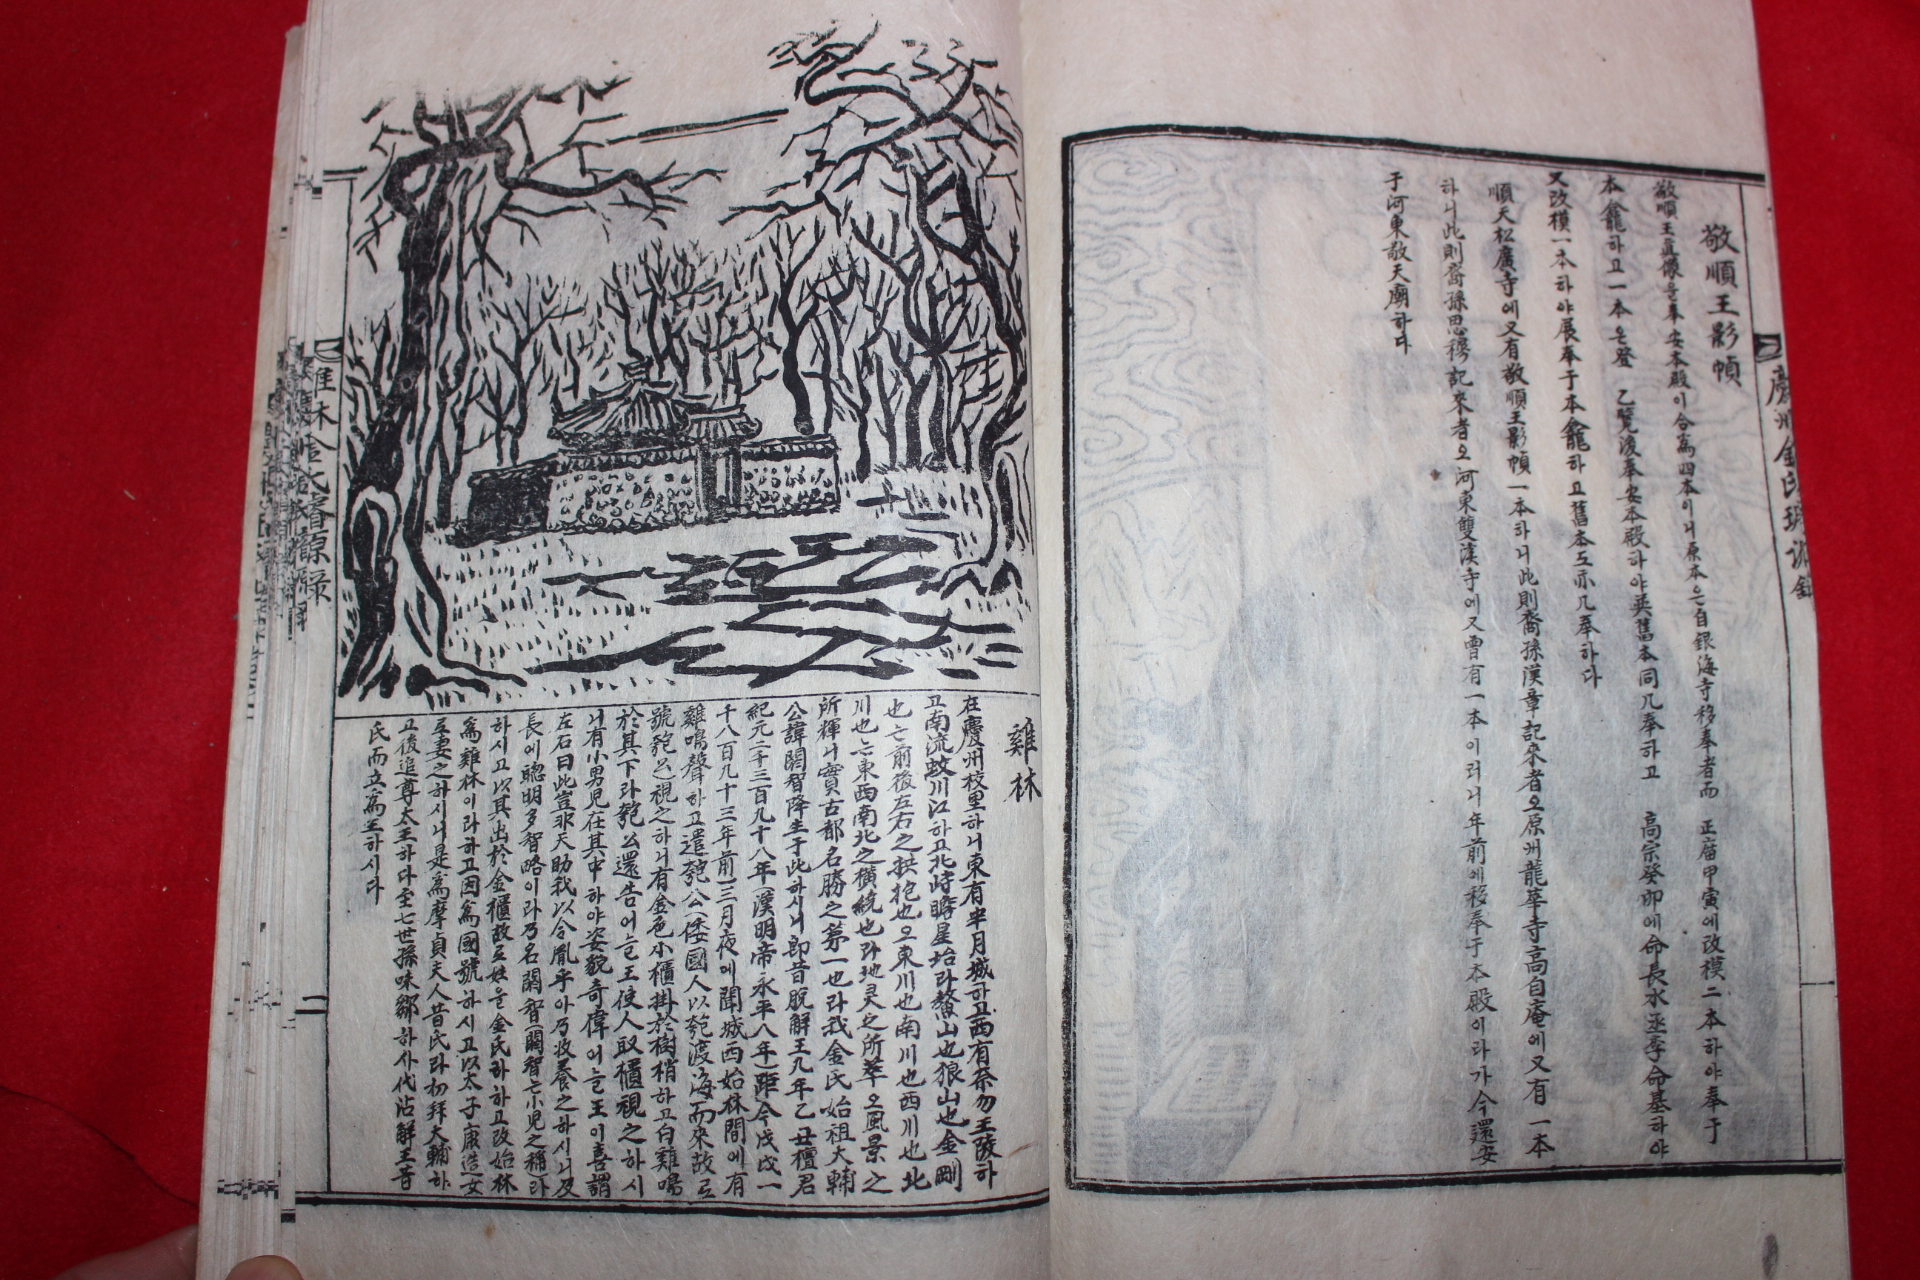 敬順王影幀
敬順王眞像을奉安本殿이合爲四本이니原本은自銀海寺移奉者而 正廟甲寅에改模二本하야奉于
本龕하고一本은登 乙覽後奉安本殿하야與舊本同几奉하고 高宗癸卯에命長水丞李命基하야
又改模一本하야展奉于本龕하고舊本도亦几奉하다
順天松廣寺에又有敬順王影幀一本하니此則裔孫漢章記來者오原州龍華寺高自庵에又有一本
하니此則裔孫思穆記來者오河東雙溪寺에又曾有一本이러니年前에移奉于本殿이라가今還安
于河東敬天廟하다
慶州金氏璿源錄
雞林
在慶州校里하니東有半月城하고西有奈勿王陵하
고南流蚊川江하고北峙瞻星坮라鰲山也狼山也金剛
也는前後左右之拱抱也오東川也南川也西川也北
川也는東西南北之橫繞也라地灵之所萃오風景之
所輝니實古都名勝之第一也라我金氏始祖大輔
公諱閼智降生于此하시니卽昔脫解王九年乙丑檀君
紀元二千三百九十八年(漢明帝永平八年)距今戊戌一
千八百九十三年前三月夜에聞城西始林間에有
雞鳴聲하고遣瓠公(倭國人以瓠渡海而來故로
號瓠公)視之하니有金色小櫃掛於樹梢하고白雞鳴
於其下라瓠公還告어늘王使人取櫃視之하시
니有小男兒在其中하야姿貌奇偉어늘王이喜謂
左右曰此豈非天助我以令胤乎아乃收養之하시니及
長에聰明多智略이라乃名閼智(閼智는小兒之稱)라
하시고以其出於金櫃故로姓을金氏라하고改始林
爲雞林이라하고因爲國號하시고以太子康造女
로妻之하시니是爲摩貞夫人昔氏라初拜大輔하
고後追尊太王하다至七世孫味鄒하사代沾解王昔
氏而立爲王하시다